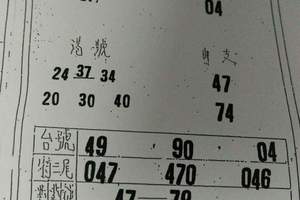 04
號
24 37 34
47
20 30 40
74
台號 49 90 04
特三尾 047 470 046
47-79